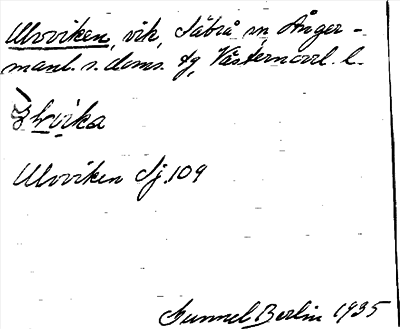 Ulvviken, vik, Säbrå sn Ånger-
manl. s. doms. tg, Västernorrl. l.
vika
Ulvviken Sj. 109
Gunnel Berlin 1935